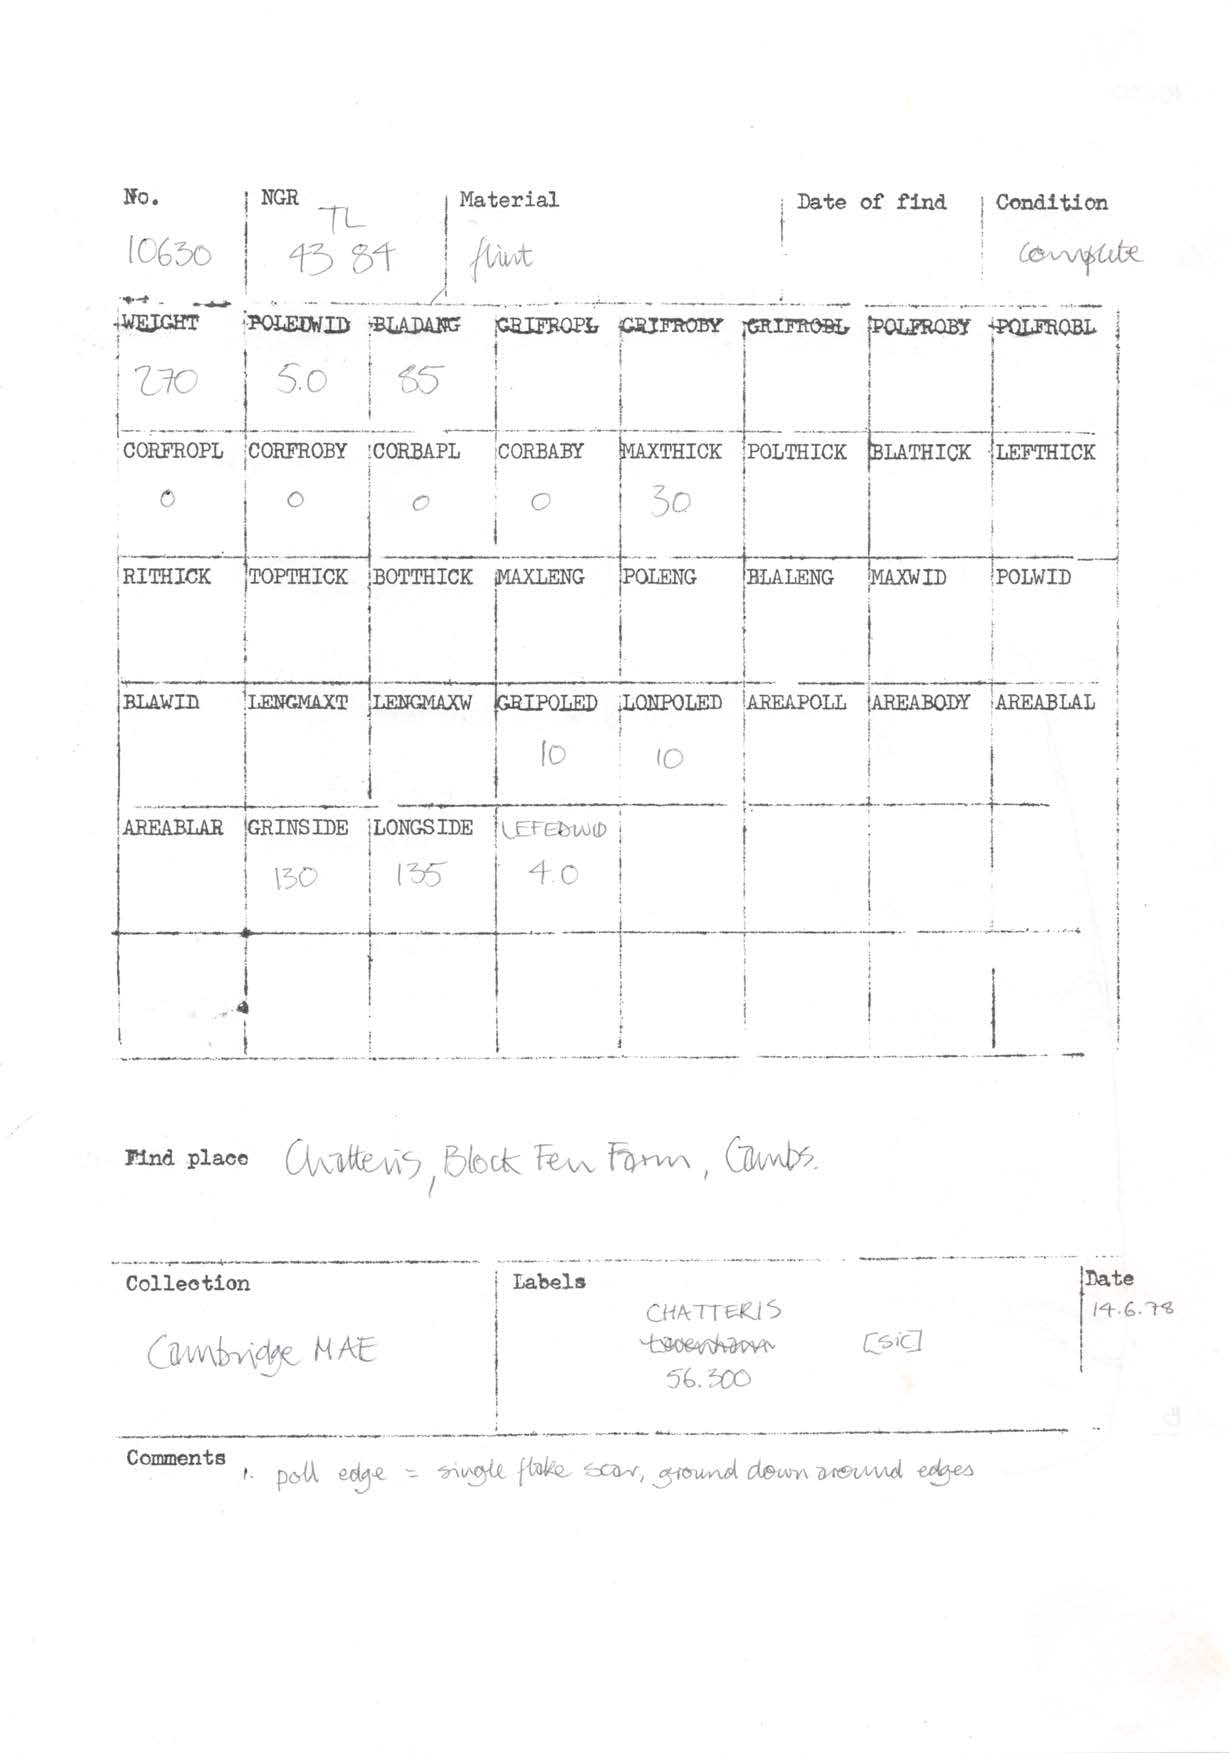 No. NGR Material Date of find Condition
TL
10630 43 84 flint complete
WEIGHT POLEDWID BLADANG GRIFROPL GRIFROBY GRIFROBL POLFROBY POLFROBL
270 5.0 85
CORFROPL CORFROBY CORBAPL CORBABY MAXTHICK POLTHICK BLATHICK LEFTHICK
0 0 0 0 30
RITHICK TOPTHICK BOTTHICK MAXLENG POLENG BLALENG MAXWID POLWID
BLAWID LENGMAXT LENGMAXW GRIPOLED LONPOLED AREAPOLL AREABODY AREABLAL
10 10
AREABLAR GRINSIDE LONGSIDE LEFEDWID
130 135 4.0
Find place Chatteris, Block Fen Farm, Cambs.
Collection Labels Date
CHATTERIS 14.6.78
Cambridge MAE [sic]
56.300
Comments 1. poll edge = single flake scar, ground down around edges